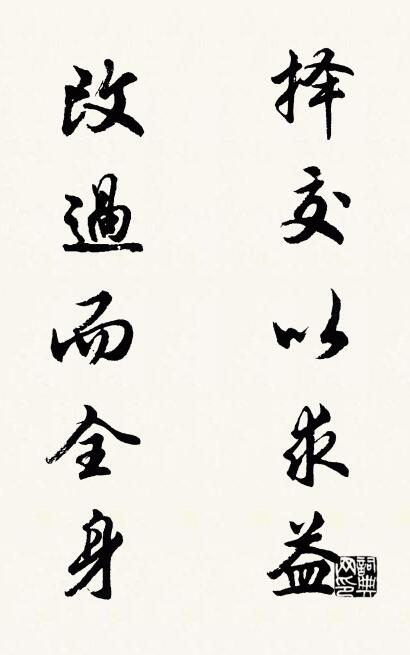 择交以求益
改過而全身
詞典网印